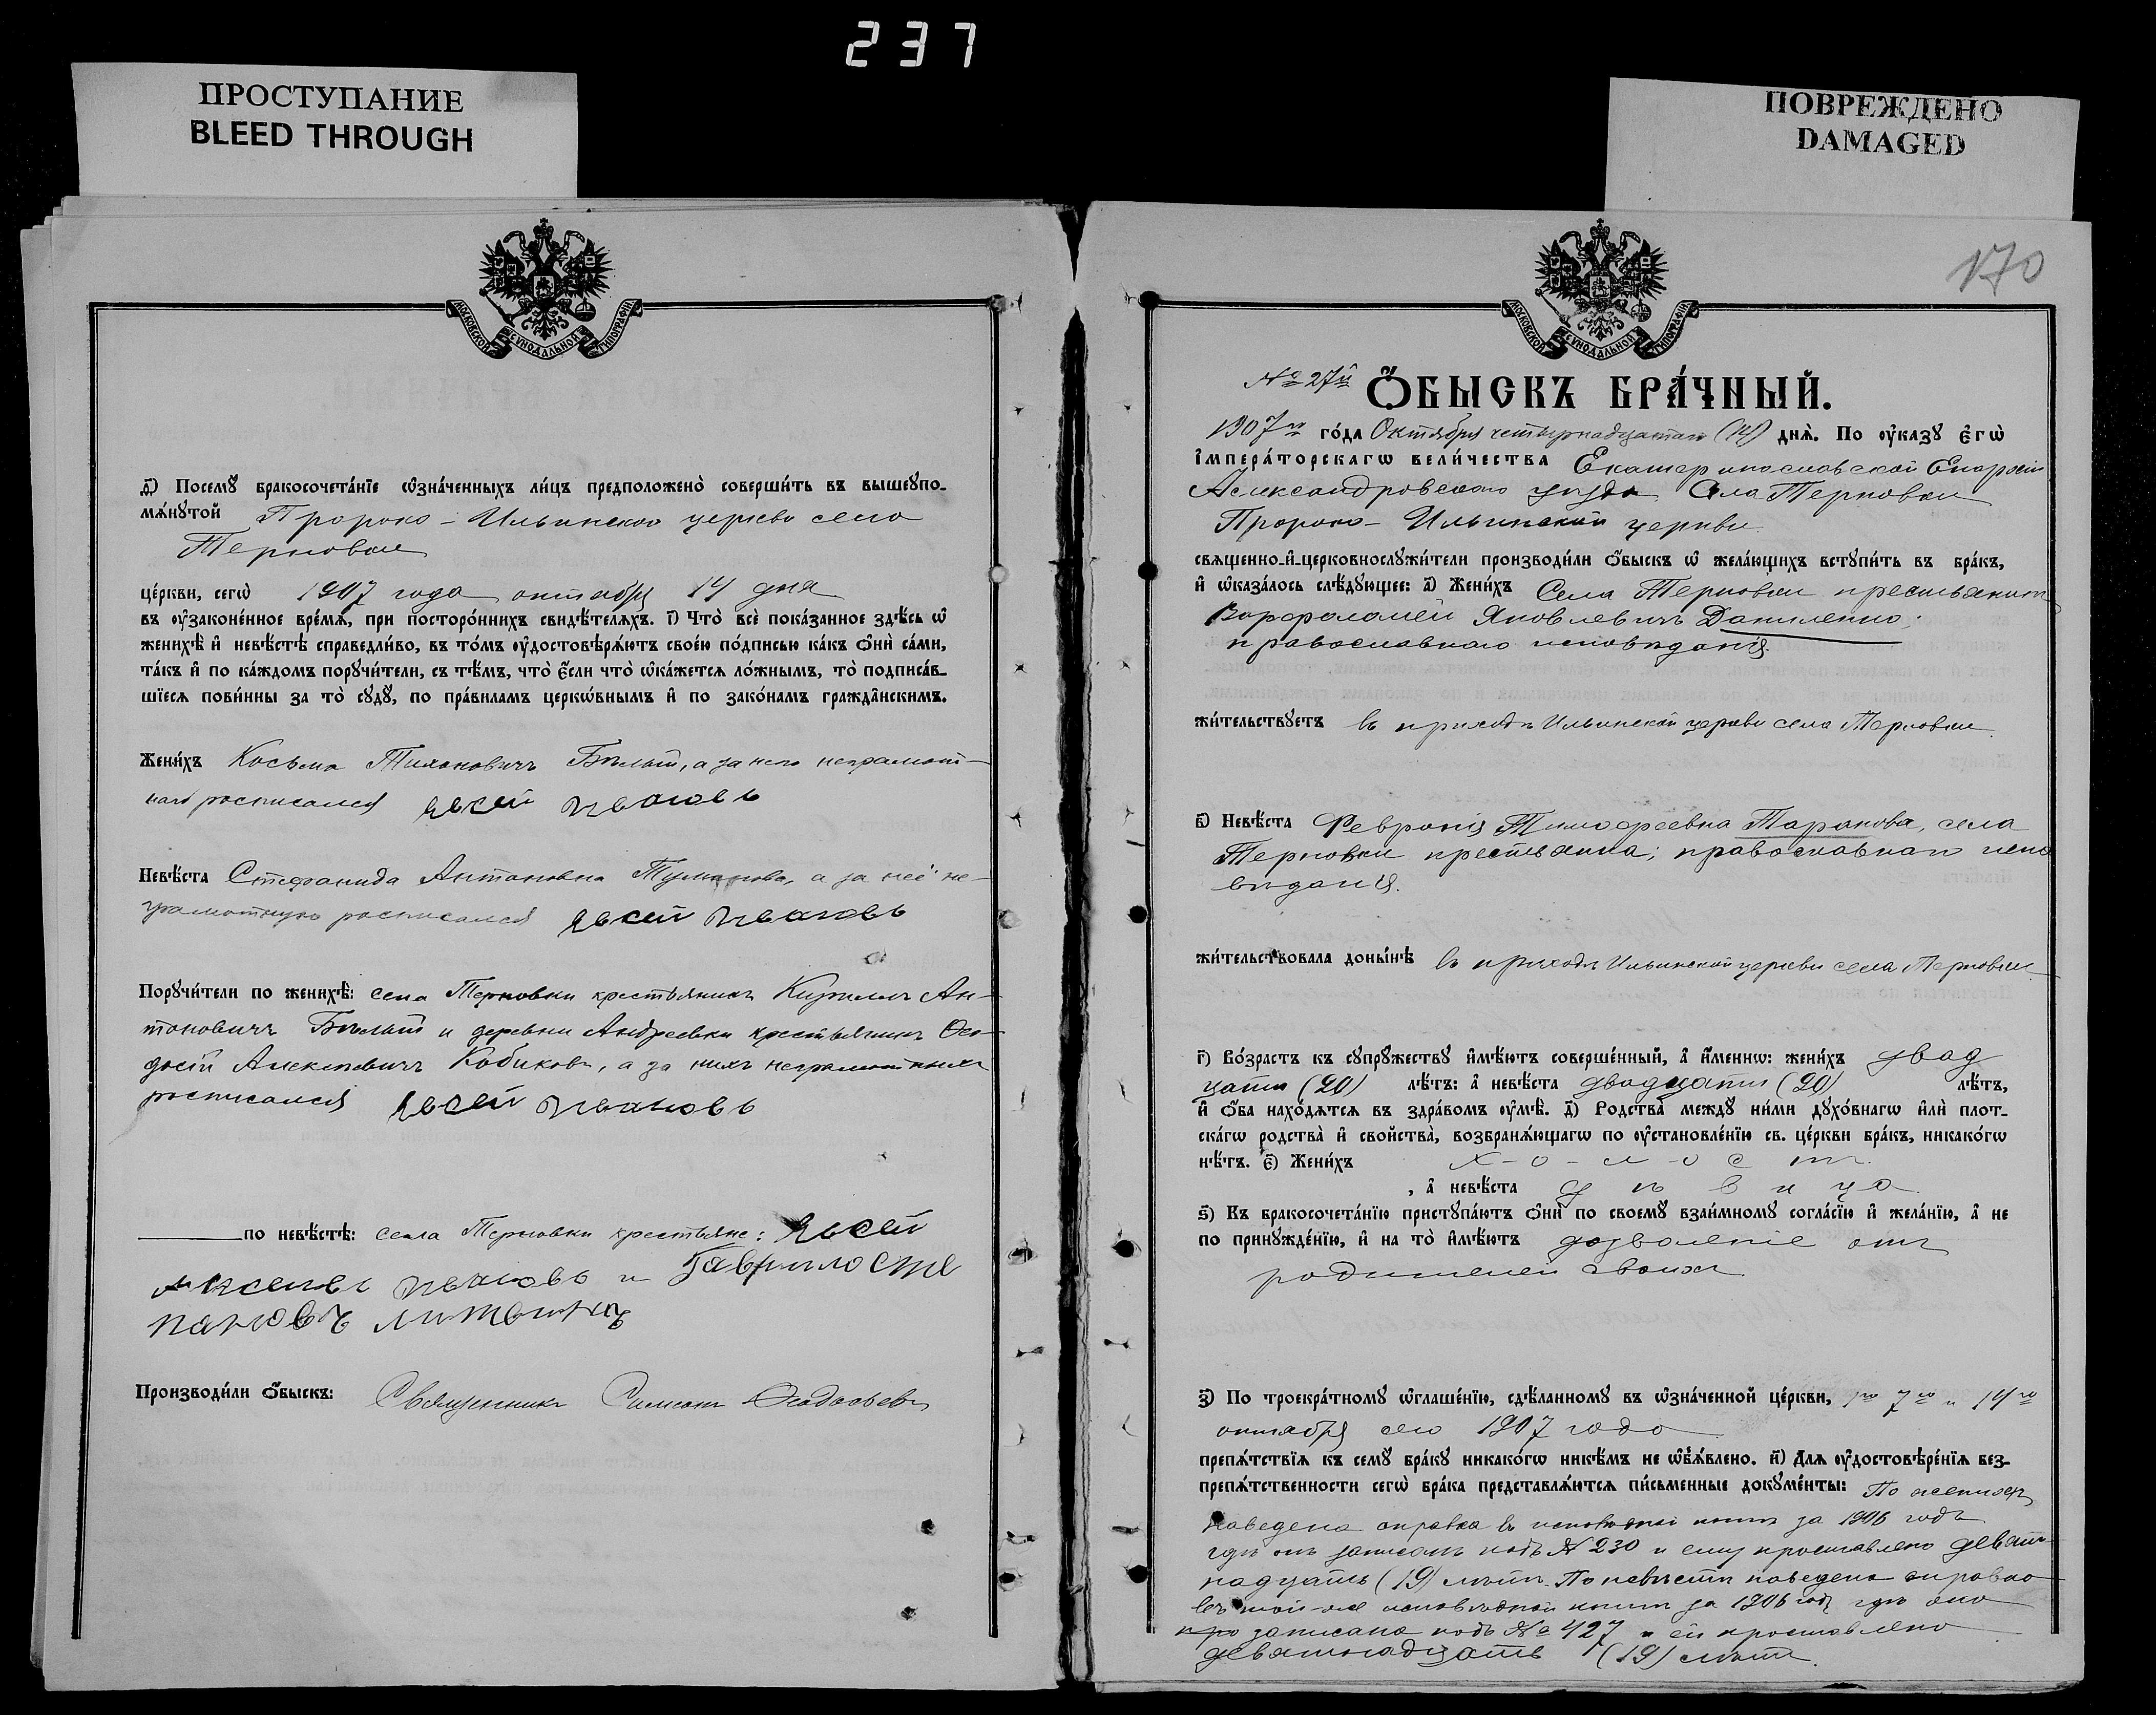 237
ПРОСТУПАНИЕ
BLEED THROUGH
ПОВРЕЖДЕНО
DAMAGED
МОСКОВСКОЙ СѴНОДАЛЬНОЙ ТИПОГРАФІИ
д҃) Посемꙋ̀ бракосочета́нїе ѡ҆зна́ченныхъ ли́цъ предположено̀ соверши́ть въ вышеꙋпо-
мѧ́нꙋтой Пророко-Ильинской церкви села
Терновки
це́ркви, сегѡ̀ 1907 года октября 14 дня
въ ᲂу҆зако́ненное вре́мѧ, при посторо́ннихъ свидѣ́телѧхъ. Г҃) Что̀ всѐ пока́занное здѣ́сь ѡ҆
женихѣ̀ и҆ невѣ́стѣ справедли́во, въ то́мъ ᲂу҆достовѣрѧ́ютъ свое́ю по́дписью ка́къ ѻ҆нѝ са́ми,
та́къ и҆ по ка́ждомъ порꙋчи́тели, съ тѣ́мъ, что̀ є҆́сли что̀ ѡ҆ка́жетсѧ ло́жнымъ, то̀ подписа́в-
шїесѧ пови́нны за то̀ сꙋдꙋ̀, по пра́виламъ церкѡ́внымъ и҆ по зако́намъ гражда̑нскимъ.
Жени́хъ Косьма Тихоновичъ Бѣлый, а за него неграмот-
наго росписался Авсей Ивановъ
Невѣ́ста Стефанида Антоновна Туманова, а за неё не-
грамотную росписался Авсей Ивановъ
Порꙋчи́тели по женихѣ̀: села Терновки крестьянинъ Кириллъ Ан-
тоновичъ Бѣлый и деревни Андреевки крестьянинъ Ѳео-
досій Алексѣевичъ Кобиковъ, а за нихъ неграмотныхъ
росписался Авсей Ивановъ
по невѣ́стѣ: села Терновки крестьяне: Авсей
Ивановъ и Гаврило Сте
пановъ Литвинъ
Производи́ли ѻ҆́быскъ: Священникъ Симеонъ
170
№ 27й Ѻ҆́БЫСКЪ БРА́ЧНЫЙ.
1907го го́да Октября четырнадцатаго (14) днѧ̀. По ᲂу҆ка́зꙋ є҆гѡ̀
і҆мпера́торскагѡ вели́чества Екатеринославской Епархіи
Александровскаго уѣзда Села Терновки
Пророко-Ильинской церкви
свѧще́нно-и҆-церковнослꙋжи́тели производи́ли ѻ҆́быскъ ѡ҆ жела́ющихъ встꙋпи́ть въ бра́къ,
и҆ ѡ҆каза́лось слѣ́дꙋющее: а҃) Жени́хъ Села Терновки крестьянинъ
Ворфоломей Яковлевичъ Даниленко;
православнаго исповѣданія.
жи́тельствꙋетъ въ приходѣ Ильинской церкви села Терновки.
в҃) Невѣ́ста Февронія Тимофеевна Таранова, села
Терновки крестьянка; православнаго испо
вѣданія.
жи́тельствовала доны́нѣ въ приходѣ Ильинской церкви села Терновки
г҃) Во́зрастъ къ сꙋпрꙋ́жествꙋ и҆мѣ́ютъ соверше́нный, а҆ и҆́меннѡ: жени́хъ двад
цати (20) лѣ́тъ: а҆ невѣ́ста двадцати (20) лѣ́тъ,
и҆ ѻ҆́ба нахо́дѧтсѧ въ здра́вомъ ᲂу҆мѣ̀. д҃) Родства̀ междꙋ̀ ни́ми дꙋхо́внагѡ и҆лѝ плот-
ска́гѡ родства̀ и҆ свойства̀, возбранѧ́ющагѡ по ᲂу҆становле́нїю св. це́ркви бра́къ, никако́гѡ
нѣ́тъ. є҃) Жени́хъ х-о-л-о с т.
, а҆ невѣ́ста д ѣ в и ц а
ѕ҃) Къ бракосочета́нїю пристꙋпа́ютъ ѻ҆нѝ по своемꙋ̀ взаи́мномꙋ согла́сїю и҆ жела́нїю, а҆ не
по принꙋжде́нїю, и҆ на то̀ и҆мѣ́ютъ дозволеніе отъ
родителей своихъ
з҃) По троекра́тномꙋ ѡ҆глаше́нїю, сдѣ́ланномꙋ въ ѡ҆зна́ченной це́ркви, 1го 7го и 14го
октября сего 1907 года
препѧ́тствїѧ къ семꙋ̀ бра́кꙋ никако́гѡ никѣ́мъ не ѡ҆б̾ѧ́влено. и҃) Длѧ ᲂу҆достовѣре́нїѧ без-
препѧ́тственности сегѡ̀ бра́ка представлѧ́ютсѧ пи́сьменные докꙋме́нты: По женихѣ
наведена справка въ исповѣдной книгѣ за 1906 годъ
гдѣ онъ записанъ подъ № 230 и ему проставлено девят-
надцать (19) лѣтъ. По невѣстѣ наведена справка
въ той-же исповѣдной книгѣ за 1906 годъ гдѣ она
записана подъ № 427 и ей проставлено
девятнадцать (19) лѣтъ.